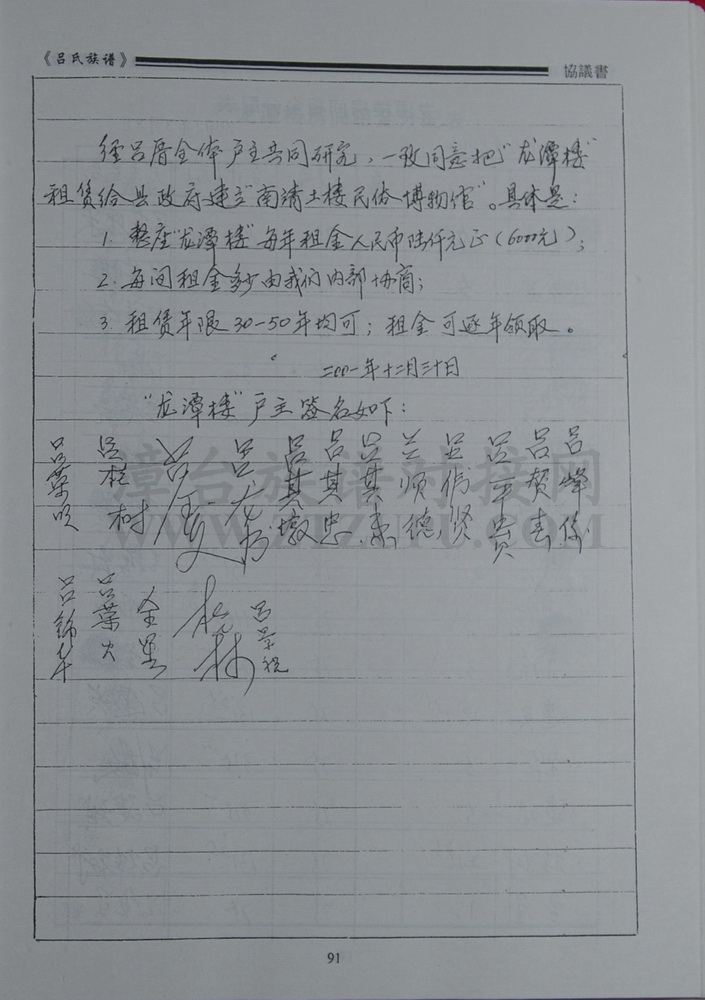 《吕氏族谱》
協議書
经吕厝全体户主共同研究，一致同意把"龙潭楼"
租赁给县政府建立"南靖土楼民俗博物馆"。具体是：
1. 整座"龙潭楼"每年租金人民币陆仟元正（6000元）；
2. 每间租金多少由我们内部协商；
3. 租赁年限30-50年均可；租金可逐年领取。
二00一年十二月三十日
"龙潭楼"户主签名如下：
吕峰
吕贺春
吕平贵
吕伟贤
吕顺德
吕其
吕其忠
吕其墩
吕
吕
吕松树
吕葉
吕景
松林
金星
吕葉火
吕锦华
漳台族谱对接网
WWW.ZTZUPU.COM
91